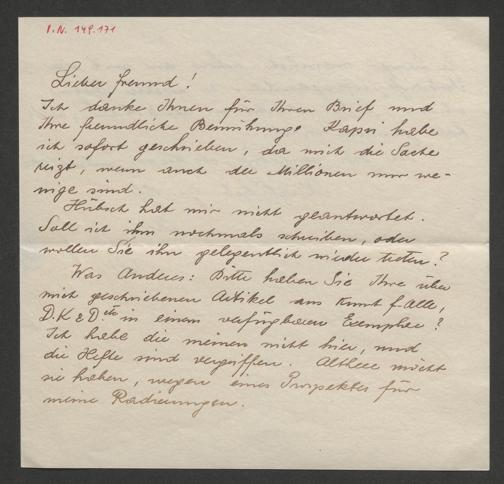 I.N. 149.171
Lieber Freund!
Ich danke Ihnen für Ihren Brief und
Ihre freundliche Bemühung. Kapsi habe
ich sofort geschrieben, da mich die Sache
reizt, wenn auch die Millionen nur we-
nige sind.
Hübsch hat mir nicht geantwortet.
Soll ich ihm nochmals schreiben, oder
wollen Sie ihn gelegentlich wieder treten?
Was Anderes: Bitte haben Sie Ihre über
mich geschriebenen Artikel aus Kunst f. Alle,
D. K & D. etc in einem verfügbaren Exemplar?
Ich habe die meinen nicht hier, und
die Hefte sind vergriffen. Althee möcht
sie haben, wegen eines Prospektes für
meine Radierungen.